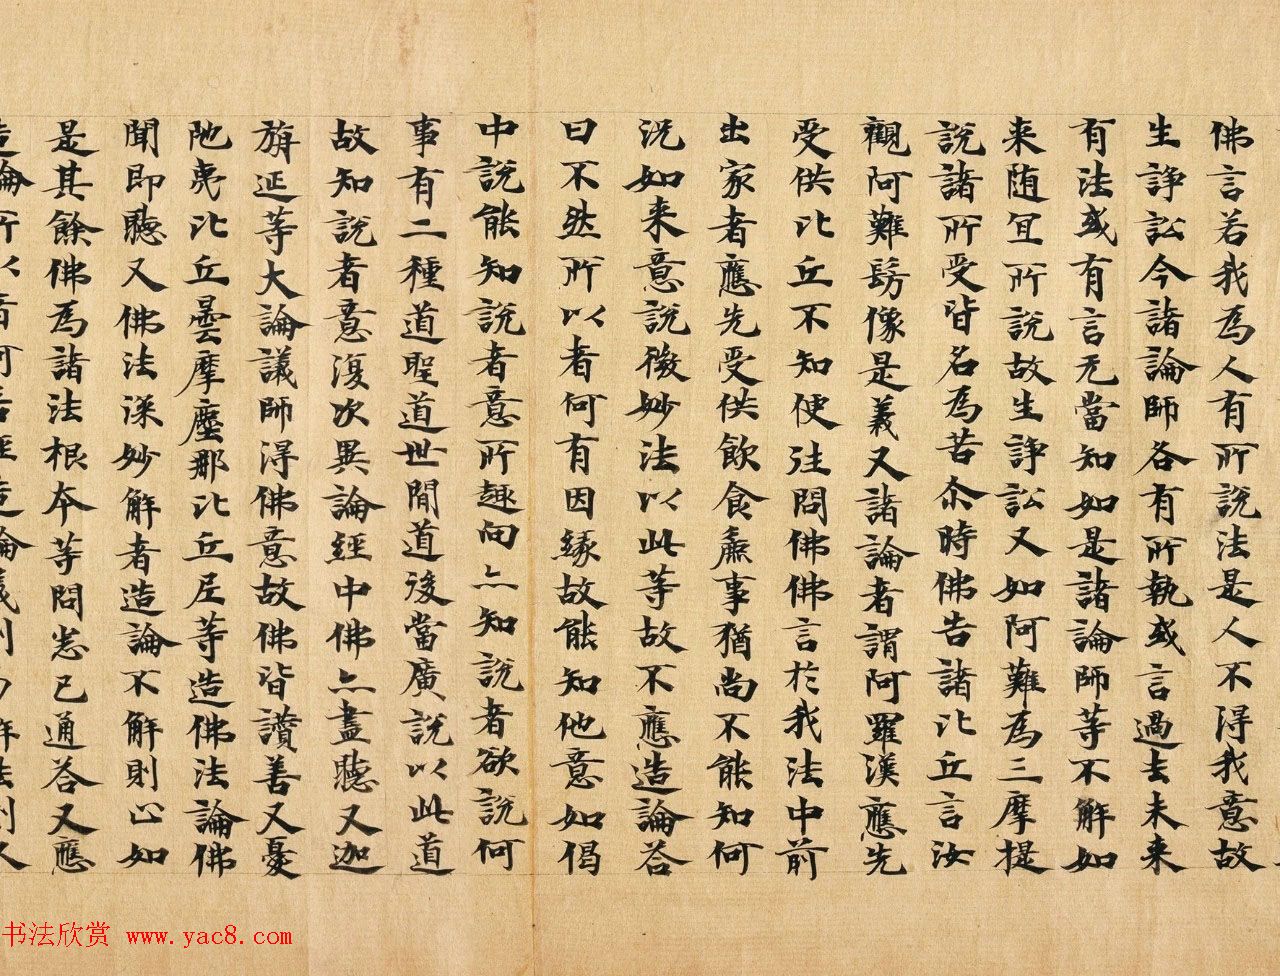 佛言若我為人有所說法是人不得我意故
生諍訟今諸論師各有所執或言過去未来
有法或有言无當知如是諸論師等不解如
来随宜所說故生諍訟又如阿難為三摩提
說諸所受皆名為苦尒時佛告諸比丘言汝
觀阿難髣像是義又諸論者謂阿羅漢應先
受供比丘不知便往問佛佛言於我法中前
出家者應先受供飲食麁事猶尚不能知何
况如来意說微妙法以此等故不應造論荅
曰不然所以者何有因緣故能知他意如偈
中說能知說者意所趣向亦知說者欲說何
事有二種道聖道世間道後當廣說以此道
故知說者意復次異論經中佛亦盡聽又迦
旃延等大論議師得佛意故佛皆讚善又憂
陁夷比丘曇摩塵那比丘尼等造佛法論佛
聞即聽又佛法深妙解者造論不解則止如
是其餘佛為諸法根本等問悉已通荅又應
书法欣赏 www.yac8.com